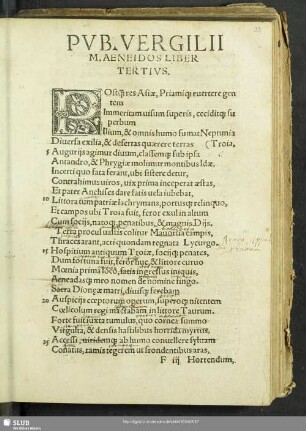 PVB. VERGILII
M. AENEIDOS LIBER
TERTIVS.
POstq̃ res Asiæ, Priamiq; euertere gen
tem
Immeritam uisum superis, ceciditq; su
perbum
Ilium, & omnis humo fumat Neptunia
Diuersa exilia, & desertas quærere terras (Troia,
5 Augurijs agimur diuum, classemq; sub ipsa
Antandro, & Phrygiæ molimur montibus Idæ,
Incerti quo fata ferant, ubi sistere detur,
Contrahimus uiros, uix prima inceperat æstas,
Et pater Anchises dare fatis uela iubebat,
10 Littora tum patriæ lachrymans, portusq; relinquo,
Et campos ubi Troia fuit, feror exul in altum
Cum socijs, natoq;, penatibus, & magnis Dijs.
Terra procul uastis colitur Mauortia campis,
Thraces arant, acri quondam regnata Lycurgo.
15 Hospitium antiquum Troiæ, socijq; penates,
Dum fortuna fuit, feror huc, & littore curuo
Mœnia prima loco, fatis ingressus iniquis,
Aeneadasq; meo nomen de nomine fingo.
Sacra Dionææ matri, diuisq; ferebam
20 Auspicijs cœptorum operum, superoq; nitentem
Cœlicolum regi mactabam, in littore Taurum.
Forte fuit iuxta tumulus, quo cornea summo
Virgulta, & densis hastilibus horrida myrtus.
Accessi, uiridemq; ab humo conuellere syluam
25 Conatus, ramis tegerem ut frondentibus aras,
F iij Horrendum,
SLUB